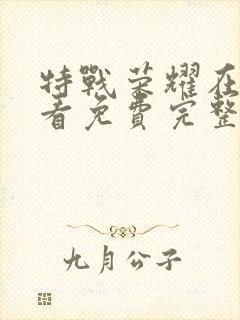 特戰荣耀在
看免費完整
九月公子